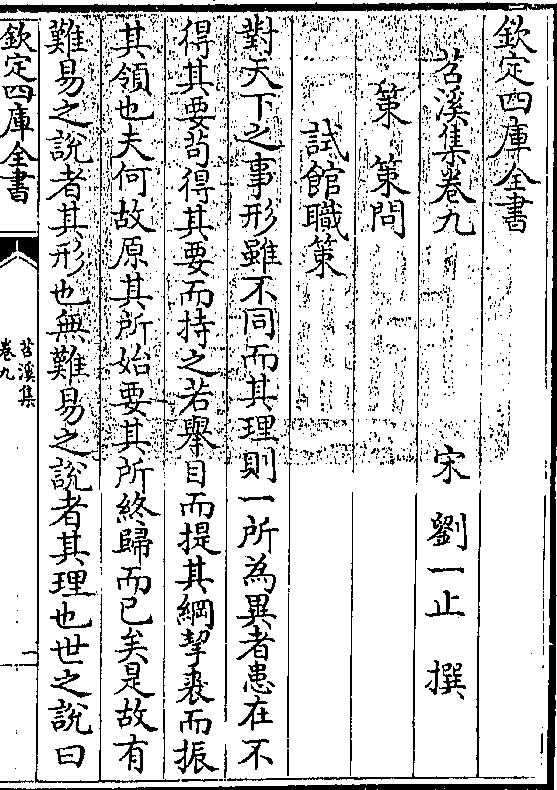 欽定四庫全書
苕溪集卷九
宋 劉一止 撰
策 策問
試館職策
對天下之事形雖不同而其理則一所為異者患在不
得其要茍得其要而持之若舉目而提其綱挈裘而振
其領也夫何故原其所始要其所終歸而已矣是故有
難易之說者其形也無難易之說者其理也世之說曰
欽定四庫全書
苕溪集
卷九
一